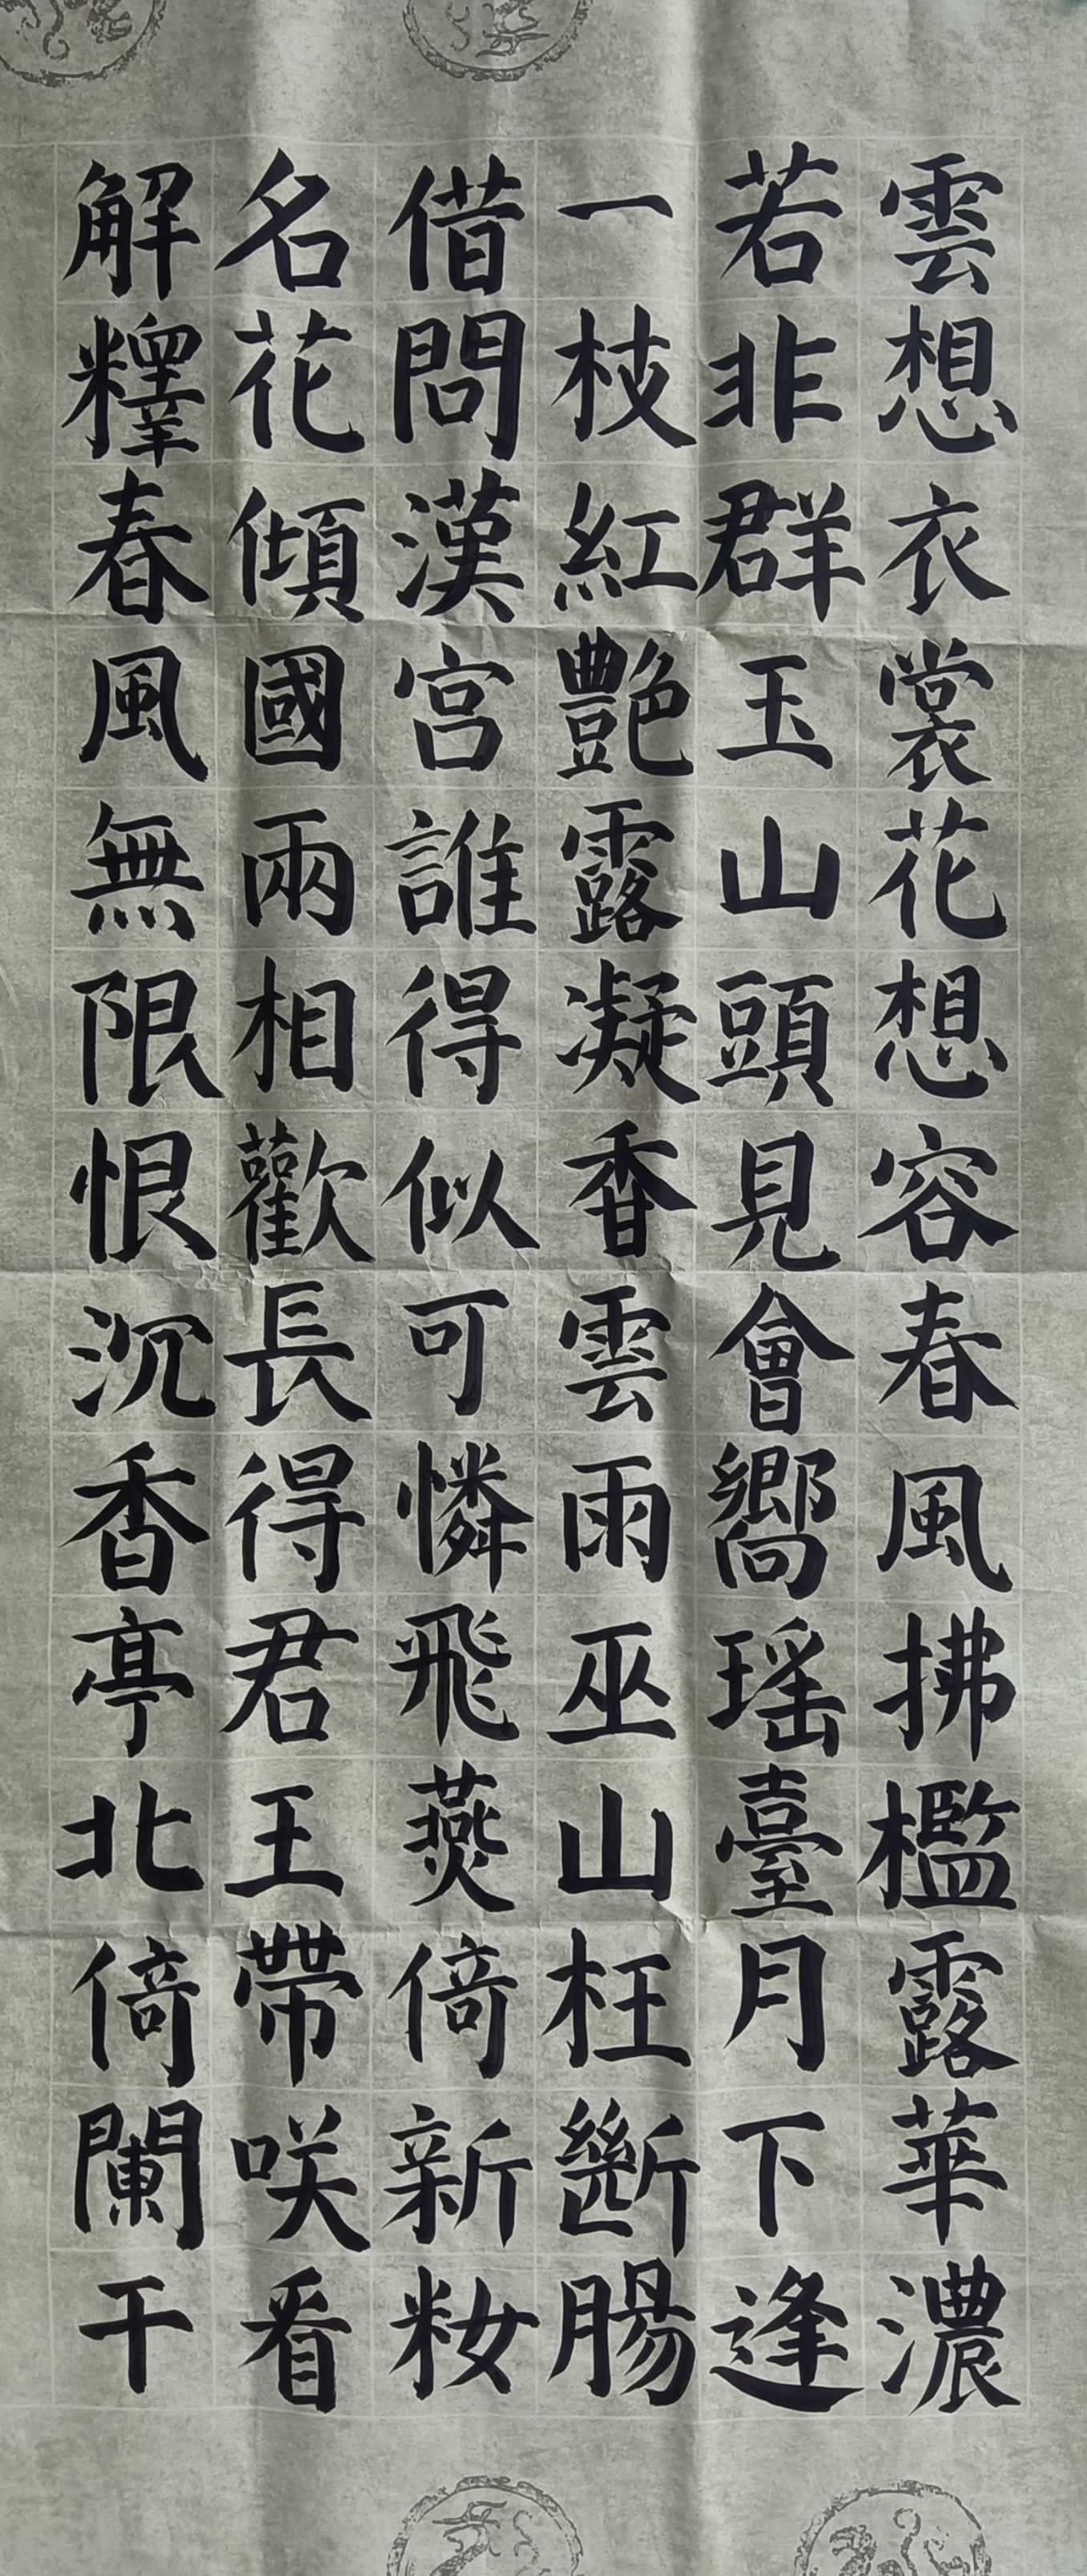 雲想衣裳花想容春風拂檻露華濃
若非群玉山頭見會嚮瑶臺月下逢
一枝紅艷露凝香雲雨巫山枉斷腸
借問漢宫誰得似可憐飛燕倚新粧
名花傾國兩相歡長得君王帶咲看
解釋春風無限恨沉香亭北倚闌干